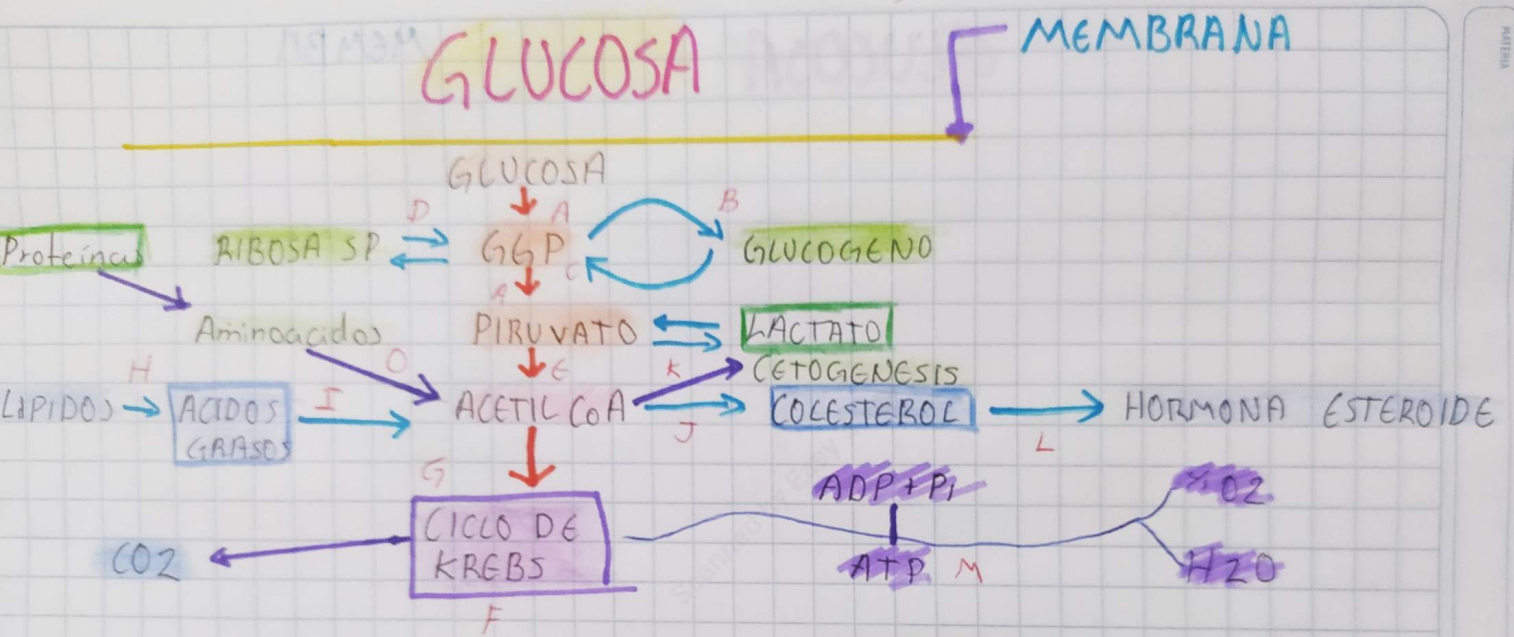 GLUCOSA
MEMBRANA
GLUCOSA
D
A
B
Proteínas
RIBOSA 5P
GGP
C
GLUCOGENO
A
Aminoacidos
PIRUVATO
LACTATO
H
O
E
K
CETOGENESIS
LIPIDOS
ACIDOS
GRASOS
I
ACETIL COA
J
COLESTEROL
L
HORMONA ESTEROIDE
G
ADP+Pi
O2
CICLO DE
KREBS
CO2
ATP
M
H2O
F
MATERIA